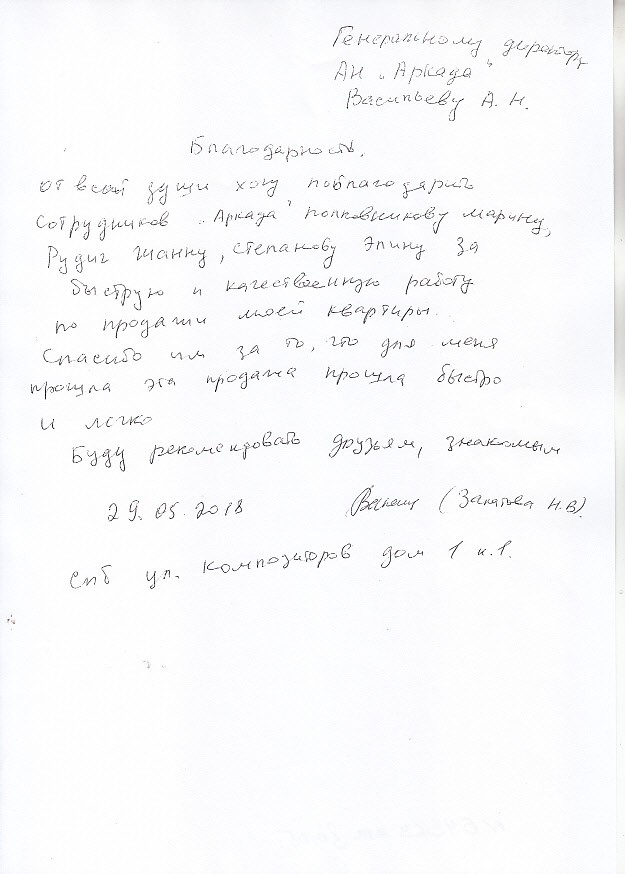 Генеральному директору
АН "Аркада"
Васильеву А. Н.
Благодарность.
от всей души хочу поблагодарить
сотрудников "Аркада" Полковникову Марину,
Рудиг Жанну, Степанову Элину за
быструю и качественную работу
по продаже моей квартиры.
Спасибо им за то, что для меня
прошла эта продажа прошла быстро
и легко
Буду рекомендовать друзьям, знакомым
29.05.2018 (Закатова Н.В).
Спб ул. Композиторов дом 1 к.1.